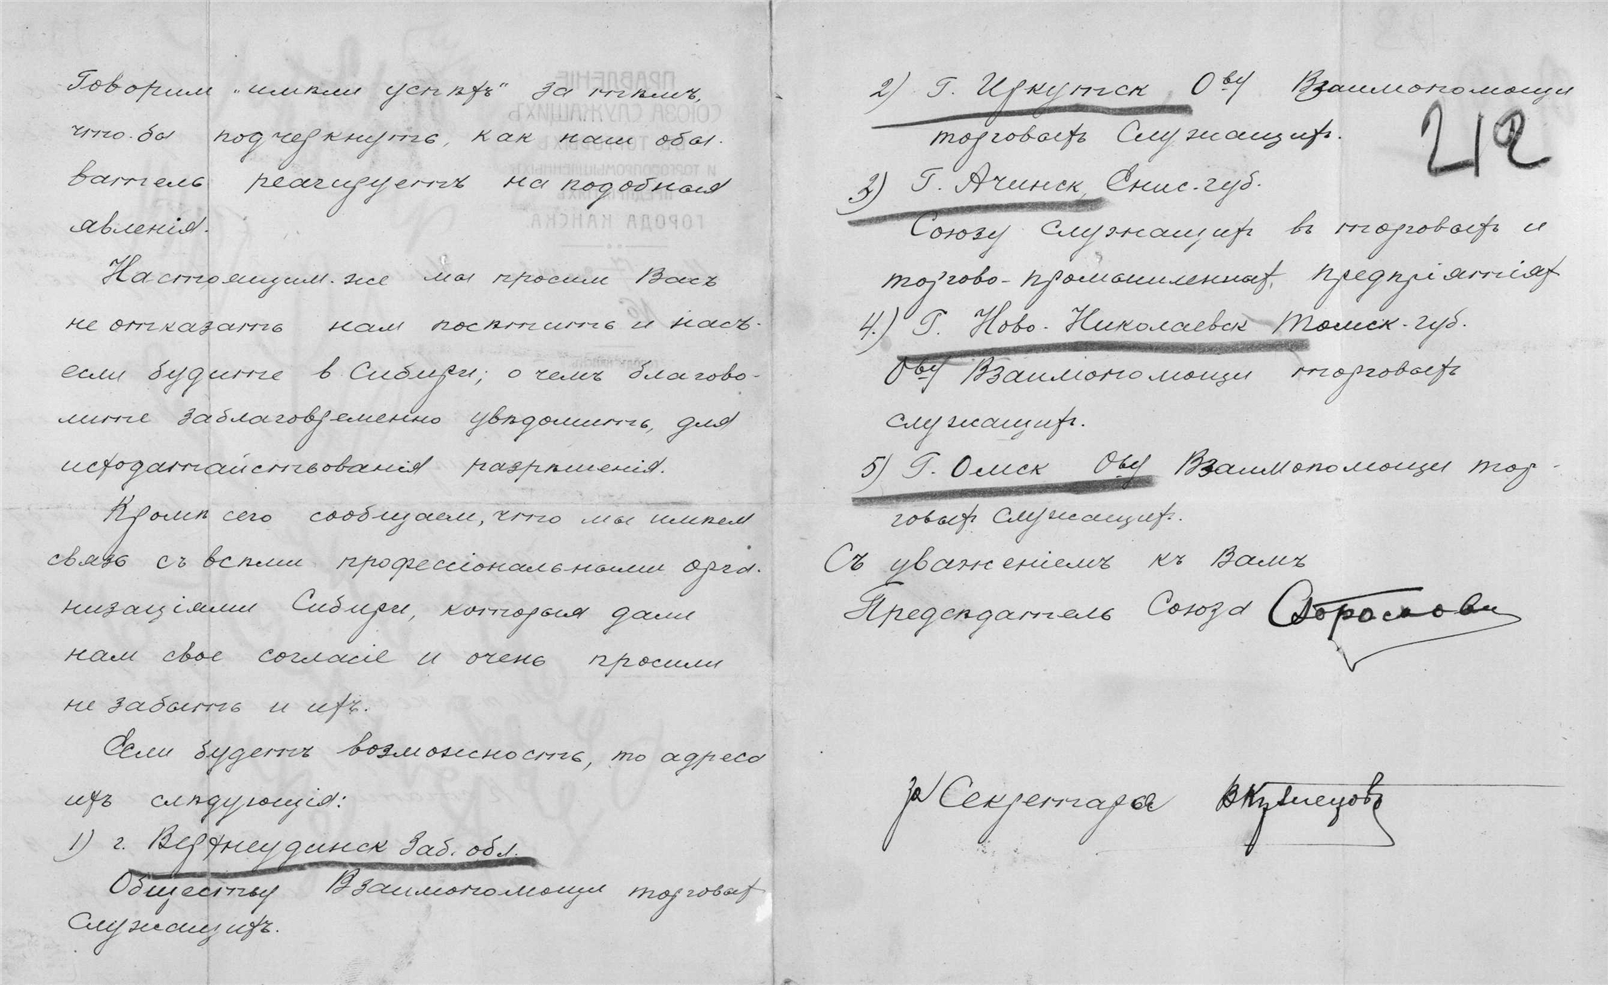 Говорим „имѣли успѣхъ" за тѣмъ,
что-бы подчеркнуть, как наш обы-
ватель реагируетъ на подобныя
явленія.
Настоящим-же мы просим Васъ
не отказать нам посѣтить и насъ-
если будите в Сибири; о чемъ благово-
лите заблаговременно увѣдомить, для
исходатайствованія разрѣшенія.
Кромѣ сего сообщаем, что мы имѣем
связь съ всѣми професіональными орга-
низаціями Сибири, которыя дали
нам свое согласіе и очень просили
не забыть и ихъ.
Если будетъ возможность, то адреса
ихъ слѣдующія:
1) г. Верхнеудинск Заб. обл.
Обществу Взаимопомощи торговых
Служащихъ.
2) Г. Иркутск Обву Взаимопомощи
торговыхъ Служащихъ.
3) Г. Ачинск, Енис. губ.
Союзу служащихъ въ торговыхъ и
торгово-промышленных, предпріятіях
4.) Г. Ново-Николаевск Томск-губ.
Обву Взаимопомощи торговыхъ
служащихъ.
5) Г. Омск Обву Взаимопомощи тор-
говыхъ служащихъ.
Съ уваженіемъ къ Вамъ
Предсѣдатель Союза
за Секретаря ВКузнецовъ
212
ПРАВЛЕНІЕ
СОЮЗА СЛУЖАЩИХЪ
И ТОРГОВОПРОМЫШЛЕННЫХЪ
ГОРОДА КАНСКА.